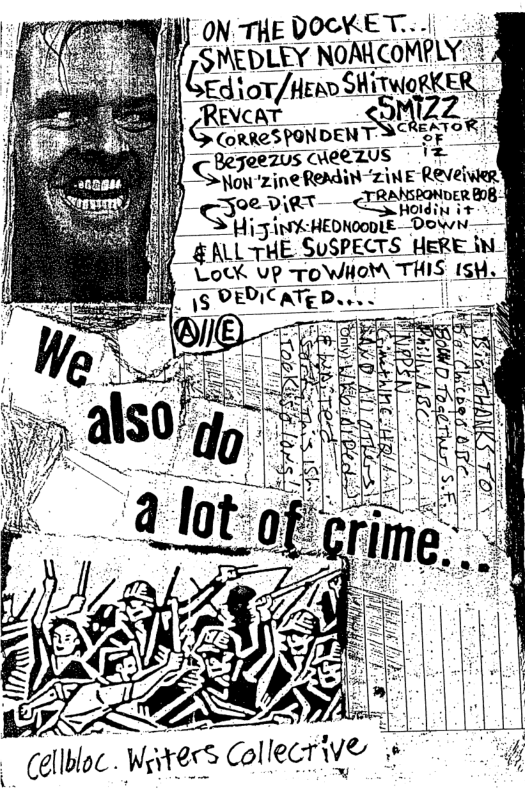 ON THE DOCKET...
SMEDLEY NOAHCOMPLY
EdiOT/HEAD SHiTWORKER
REVCAT
CORRESPONDENT
SMIZZ
CREATOR
OF
IZ
BeJeeZUS CHeeZUS
NON 'ziNe ReAdiN 'ZiNE ReVeiWER
JOE DIRT
HiJiNX-HEDNOODLE
TRANSPONDER BOB
HOLdiN iT
DOWN
& ALL THE SUSPECTS HERE IN
LOCK UP TO WHOM THIS ISH.
IS DEDICATED....
A//E
BiG THANKS TO
Chicago ABC
BOUND TOGETHER S.F.
Philly ABC
AND All OTHERS
SORRY THIS ISH.
We
also do
a lot of crime...
Cellbloc. Writers Collective